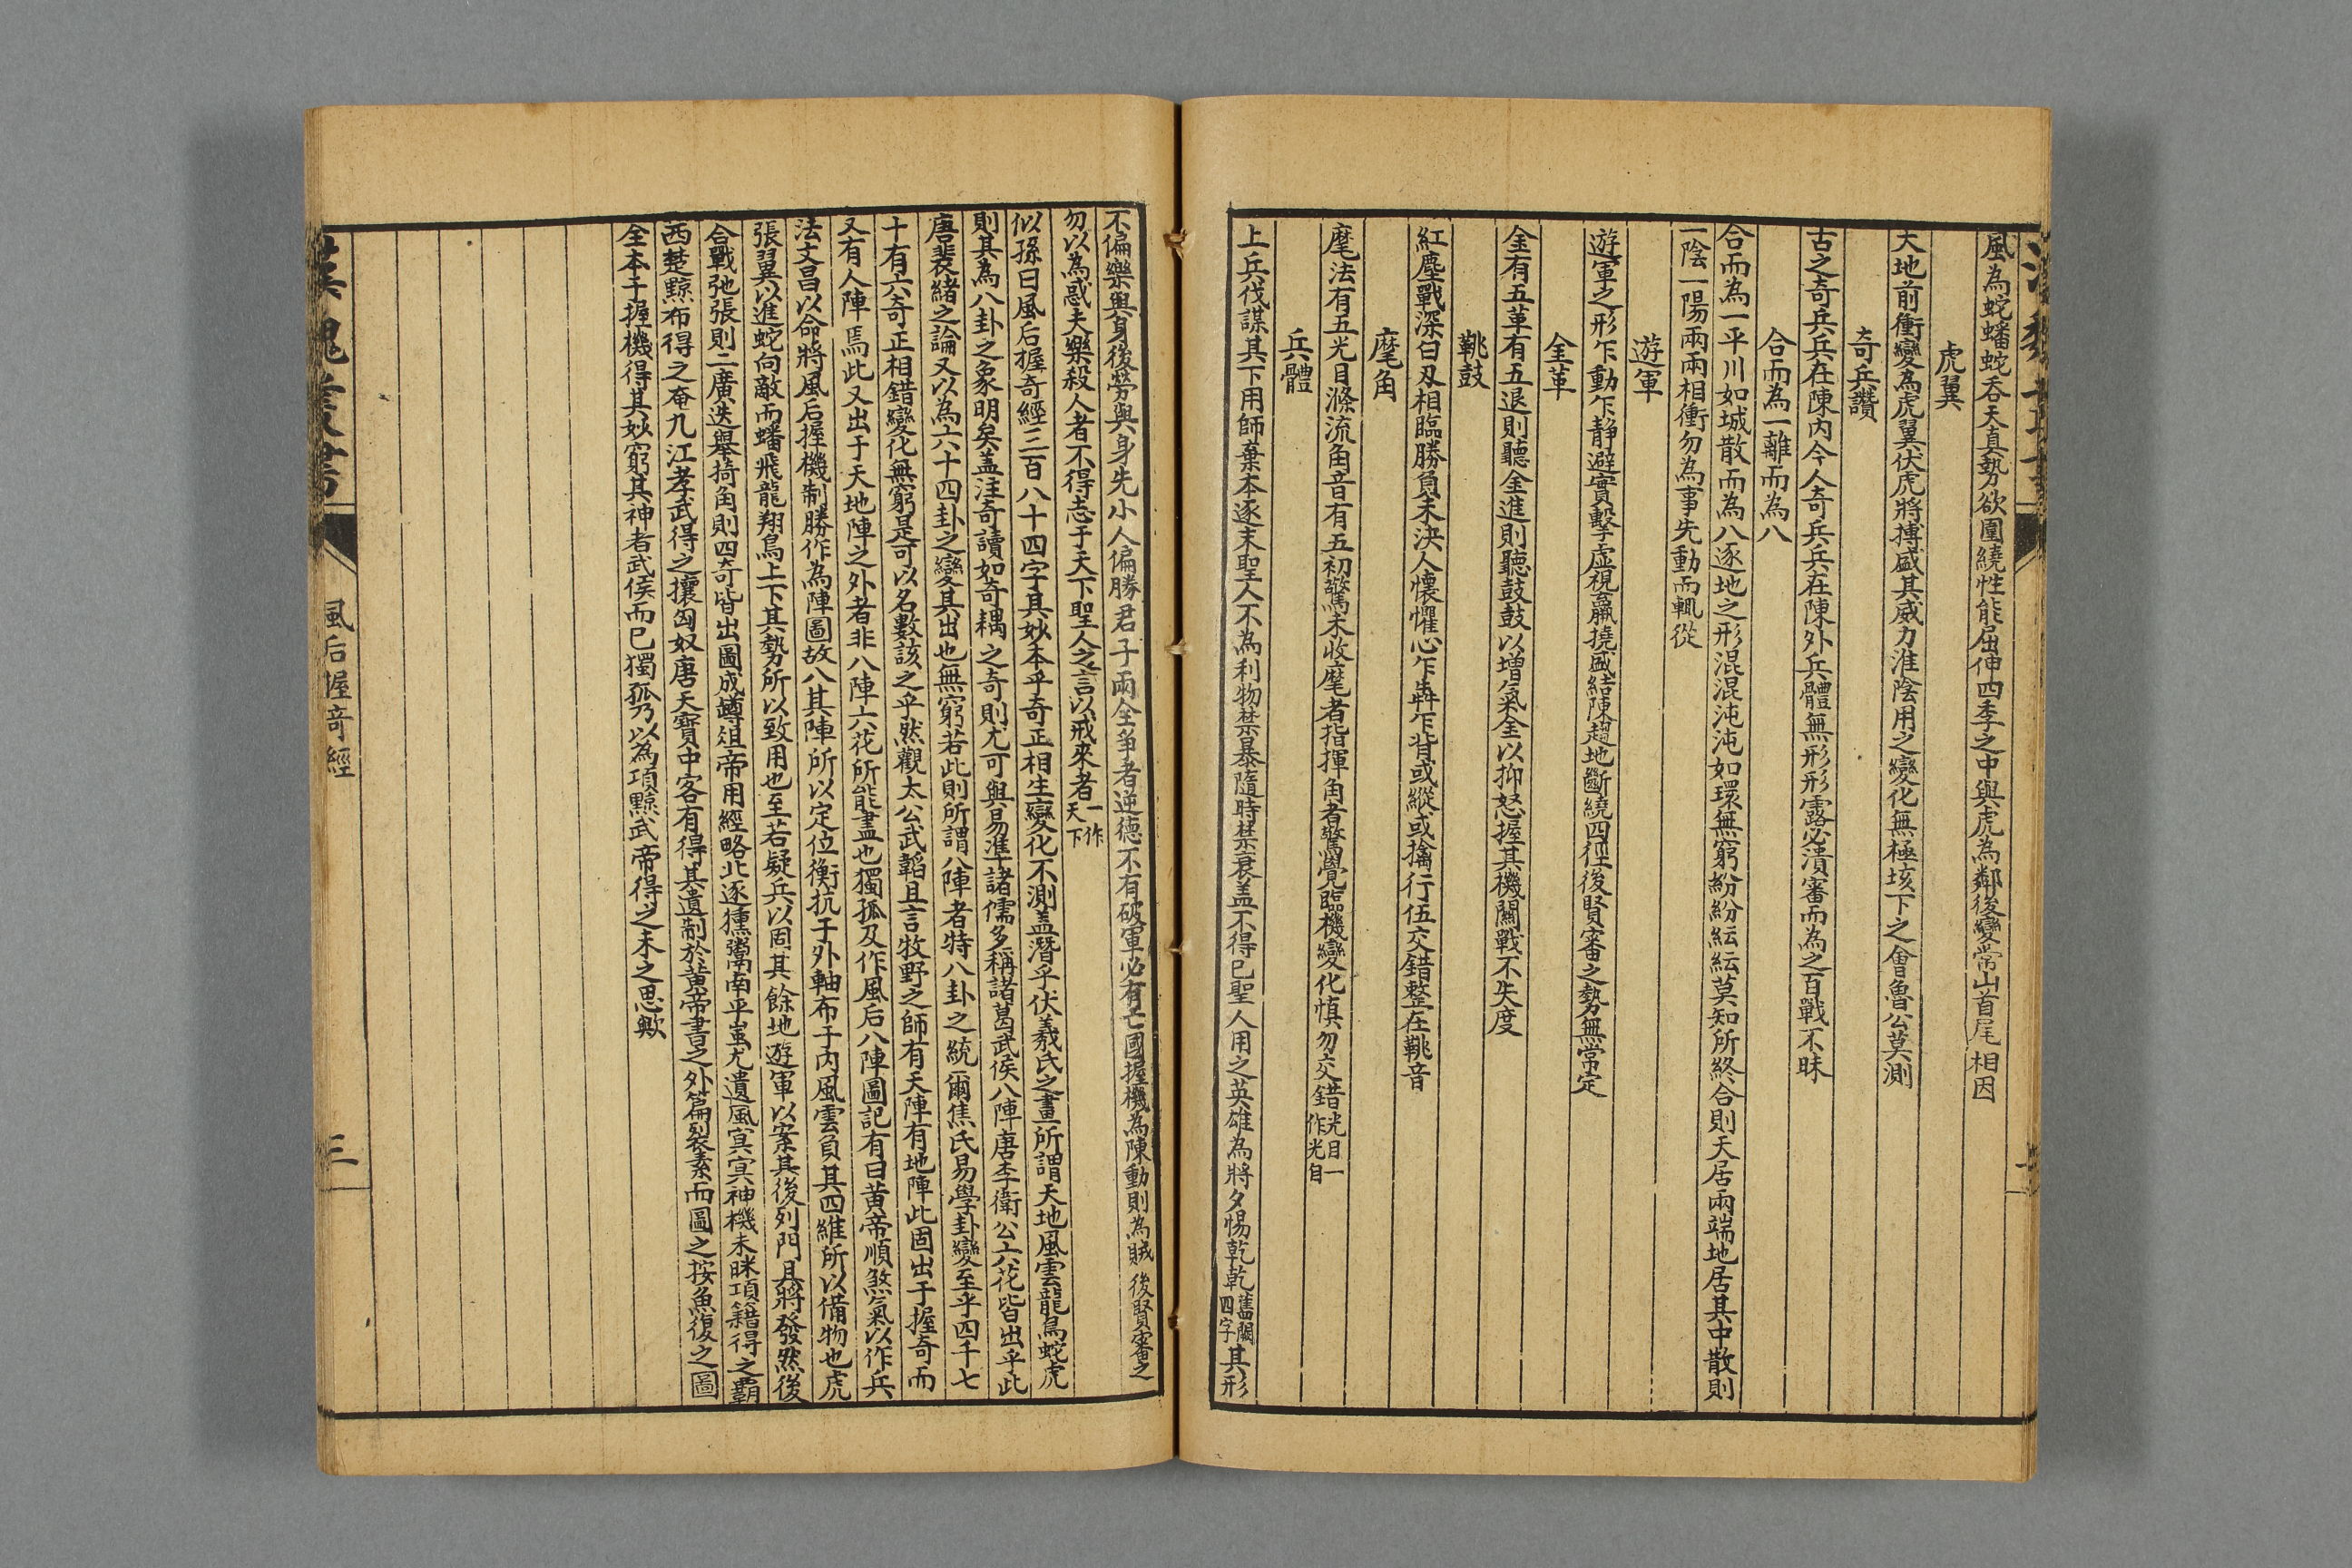 風為蛇蟠蛇吞天真勢欲圍繞性能屈伸四季之中與虎為鄰後變常山首尾相因
虎翼
天地前衝變為虎翼伏虎將搏盛其威力淮陰用之變化無極垓下之會魯公莫測
奇兵讚
古之奇兵兵在陳內今人奇兵兵在陳外兵體無形形露必潰審而為之百戰不昧
合而為一離而為八
合而為一平川如城散而為八逐地之形混混沌沌如環無窮紛紛紜紜莫知所終合則天居兩端地居其中散則
一陰一陽兩兩相衝勿為事先動而輒從
遊軍
遊軍之形乍動乍静避實擊虛視羸撓盛結陳趨地斷繞四徑後賢審之勢無常定
金革
金有五革有五退則聽金進則聽鼓鼓以增氣金以抑怒握其機關戰不失度
鞉鼓
紅塵戰深白刄相臨勝負未決人懷懼心乍犇乍背或縱或擒行伍交錯整在鞉音
麾角
麾法有五光目滌流角音有五初驚末收麾者指揮角者驚覺臨機變化慎勿交錯光目一作光自
兵體
上兵伐謀其下用師棄本逐末聖人不為利物禁暴隨時禁衰盖不得已聖人用之英雄為將夕惕乾乾舊闕四字其形
不偏樂與身後勞與身先小人偏勝君子兩全爭者逆德不有破軍必有亡國握機為陳動則為賊後賢審之
勿以為惑夫樂殺人者不得志于天下聖人之言以戒來者一作天下
似孫曰風后握奇經三百八十四字其妙本乎奇正相生變化不測盖潛乎伏羲氏之畫所謂天地風雲龍鳥蛇虎
則其為八卦之象明矣盖注奇讀如奇耦之奇則尤可與易準諸儒多稱諸葛武侯八陣唐李衛公六花皆出乎此
唐裴緒之論又以為六十四卦之變其出也無窮若此則所謂八陣者特八卦之統爾焦氏易學卦變至乎四千七
十有六奇正相錯變化無窮是可以名數該之乎然觀太公武韜且言牧野之師有天陣有地陣此固出于握奇而
又有人陣焉此又出于天地陣之外者非八陣六花所能盡也獨孤及作風后八陣圖記有曰黄帝順煞氣以作兵
法文昌以命將風后握機制勝作為陣圖故八其陣所以定位衡抗于外軸布于內風雲負其四維所以備物也虎
張翼以進蛇向敵而蟠飛龍翔鳥上下其勢所以致用也至若疑兵以固其餘地遊軍以案其後列門具將發然後
合戰弛張則二廣迭舉掎角則四奇皆出圖成罇俎帝用經略北逐獯鬻南平蚩尤遺風冥冥神機未眜項籍得之霸
西楚黥布得之奄九江孝武得之攘匈奴唐天寶中客有得其遺制於黄帝書之外篇裂素而圖之按魚復之圖
全本于握機得其妙窮其神者武侯而已獨孤乃以為項黥武帝得之未之思歟
風后握奇經
三